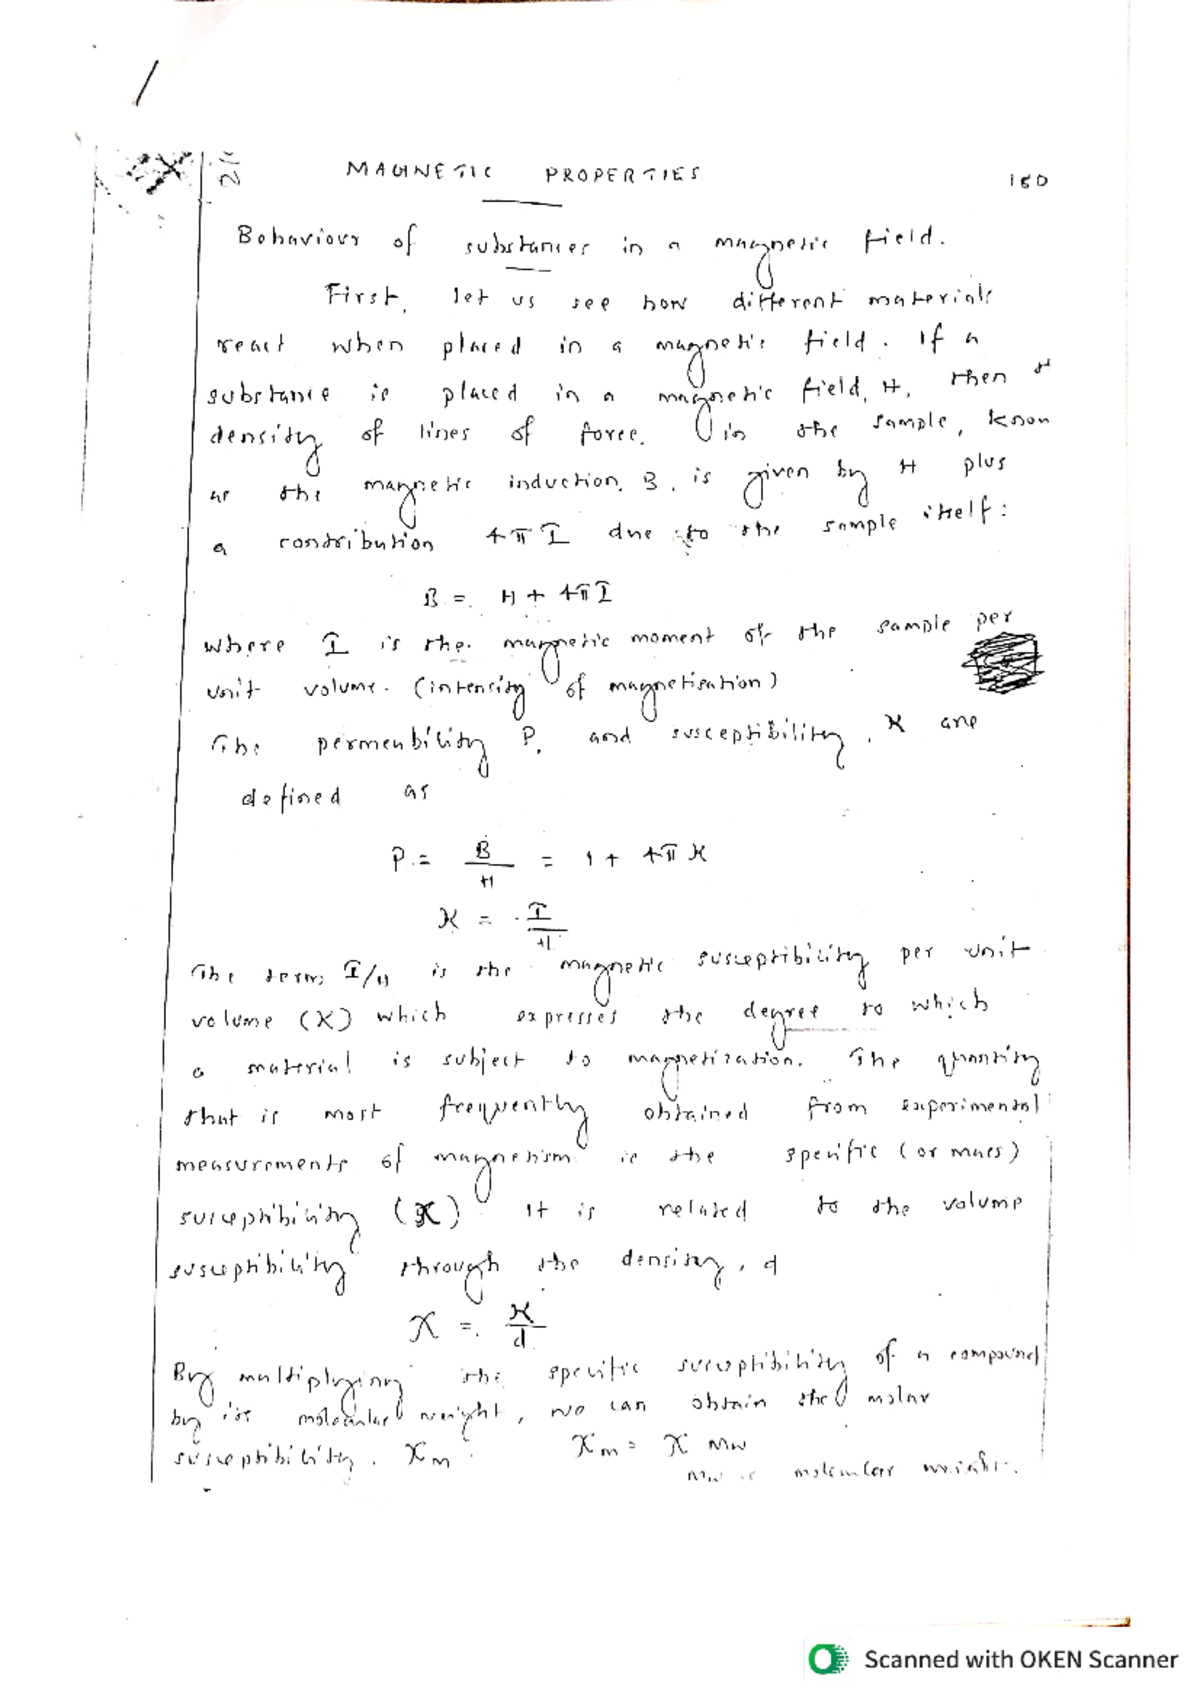 MAGNETIC PROPERTIES 160
Behaviour of substances in a magnetic field.
First, let us see how different materials
react when placed in a magnetic field. If a
substance is placed in a magnetic field, H, then
density of lines of force, in the sample, known
as the magnetic induction, B, is given by H plus
a contribution 4π I due to the sample itself:
B = H + 4πI
where I is the magnetic moment of the sample per
unit volume. (intensity of magnetisation)
The permeability P, and susceptibility, K are
defined as
P = B/H = 1 + 4π K
K = I/H
The term I/H is the magnetic susceptibility per unit
volume (K) which expresses the degree to which
a material is subject to magnetization. The quantity
that is most frequently obtained from experimental
measurements of magnetism is the specific (or mass)
susceptibility (χ) It is related to the volume
susceptibility through the density, d
χ = K/d
By multiplying the specific susceptibility of a compound
by its molecular weight, we can obtain the molar
susceptibility, χm: χm = χ MW
MW is molecular weight.
Scanned with OKEN Scanner